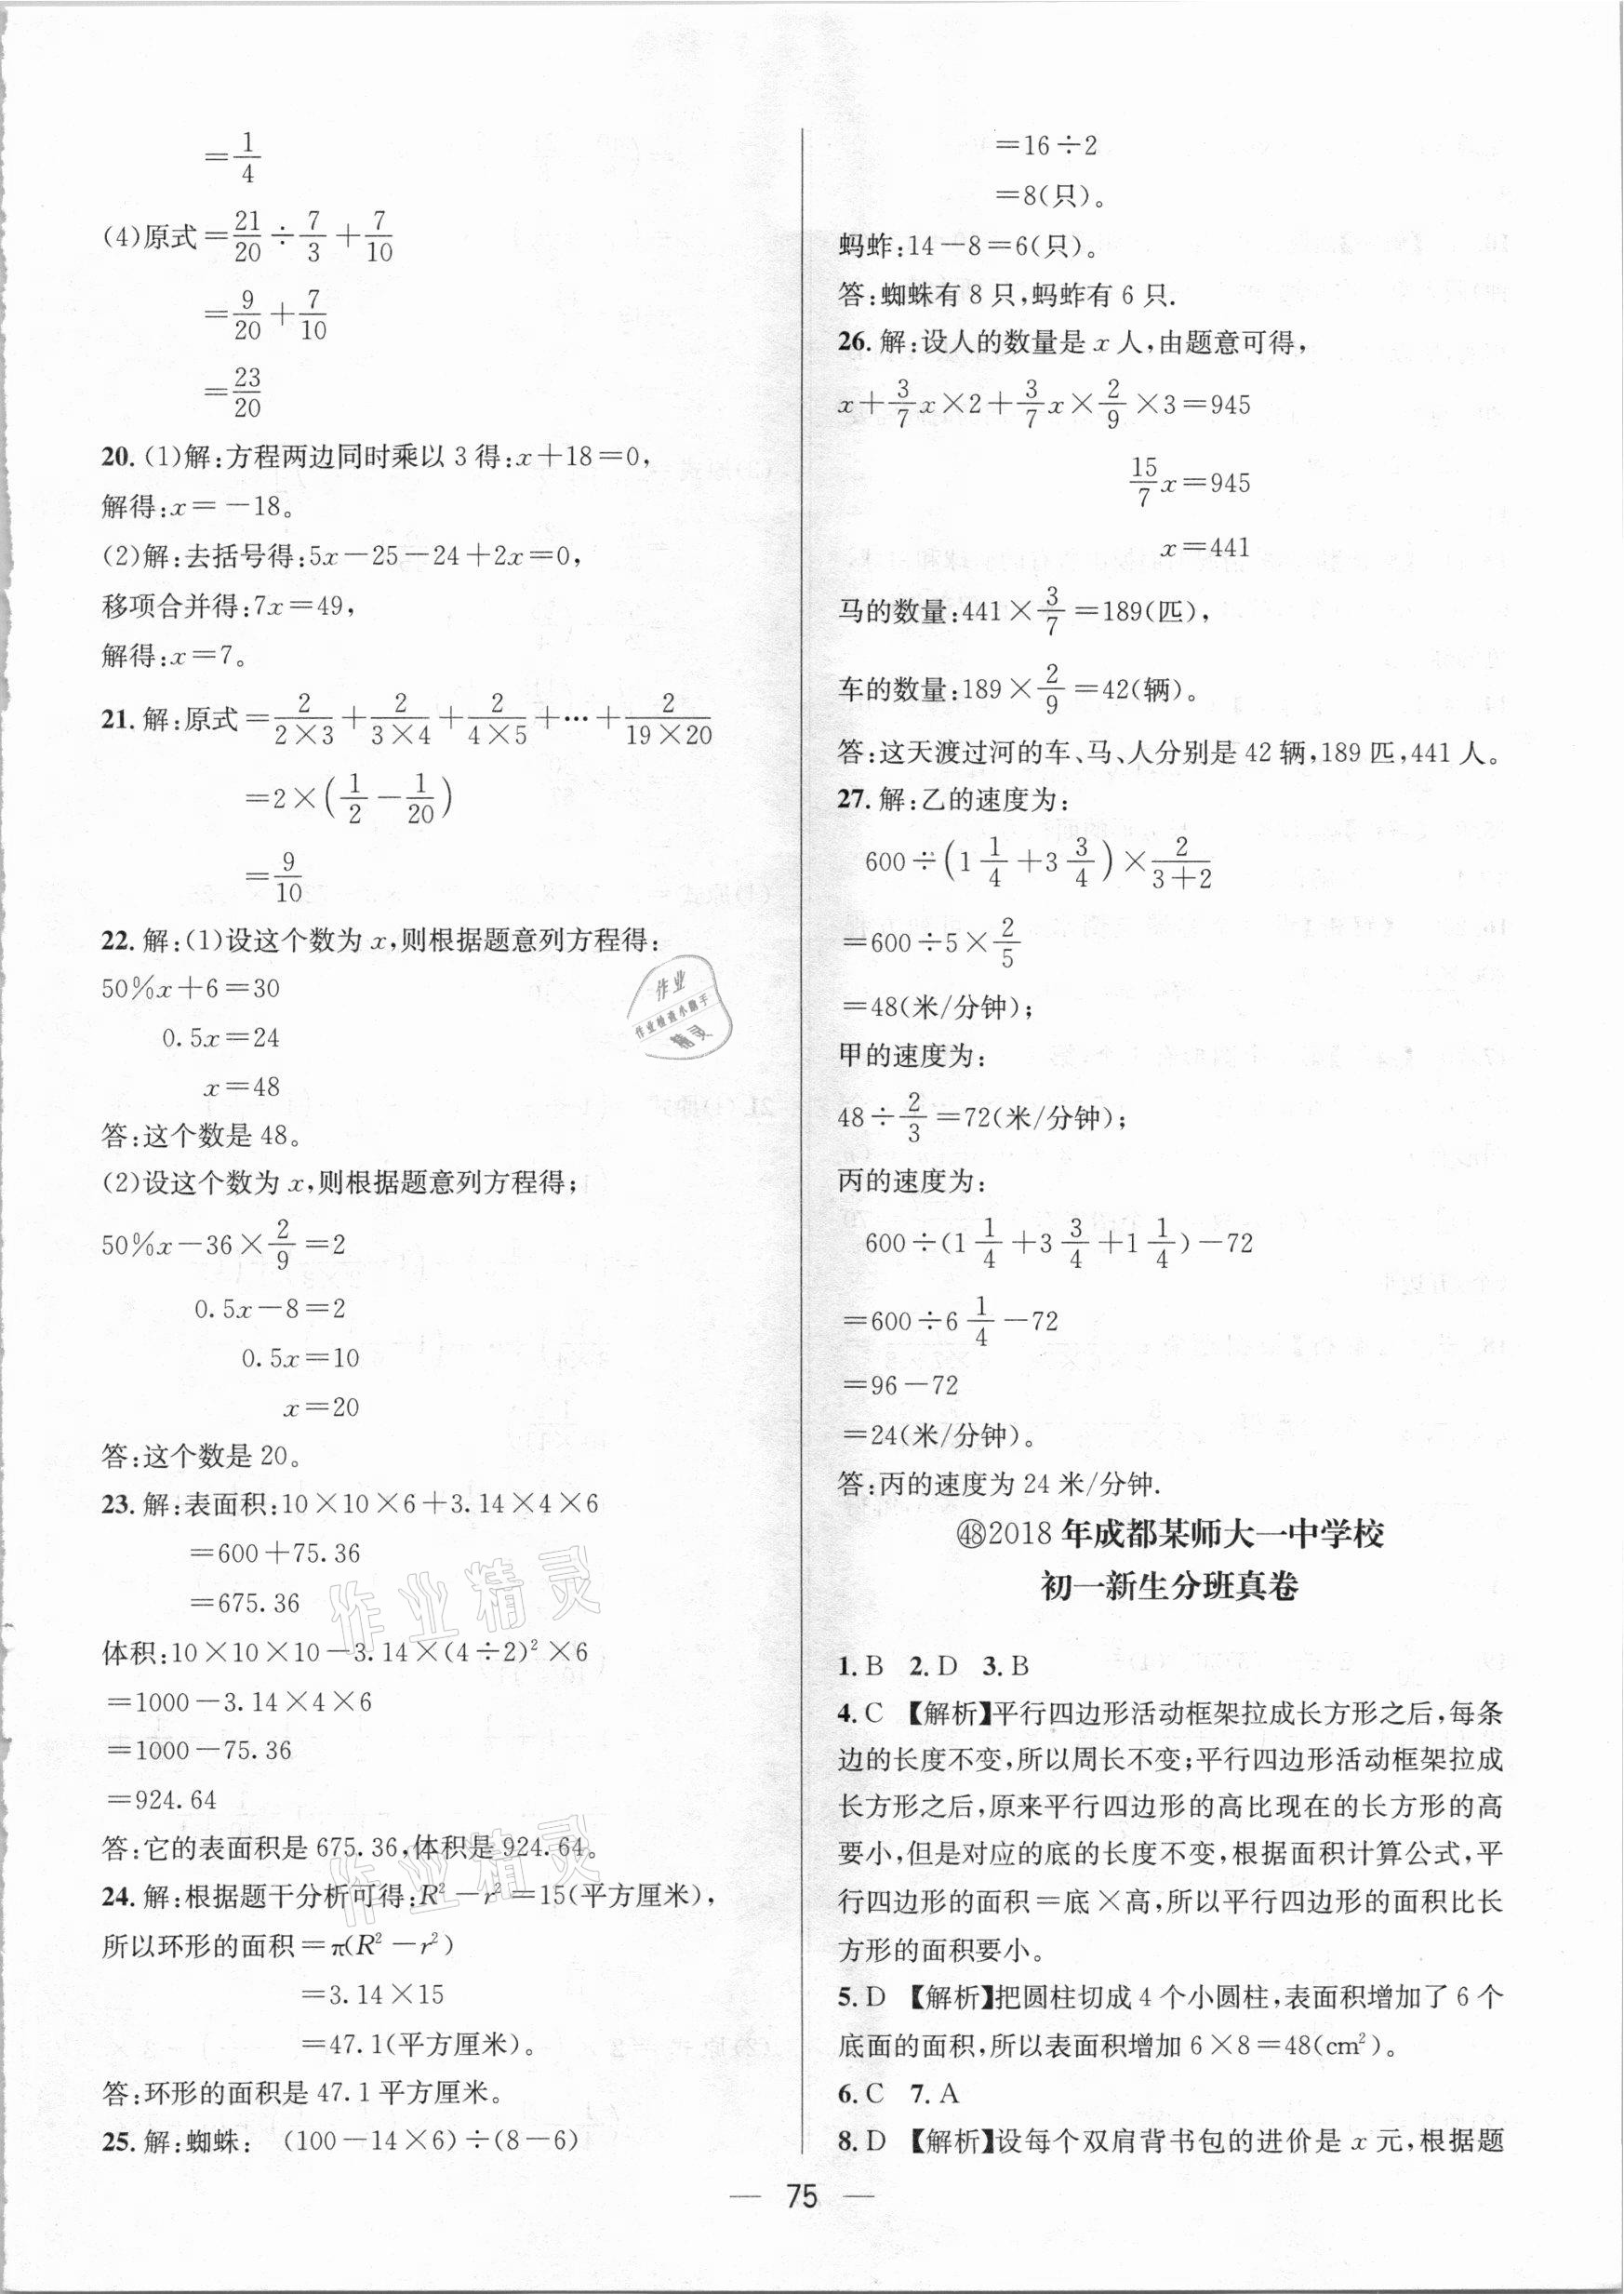 =1/4
(4)原式=21/20÷7/3+7/10
=9/20+7/10
=23/20
20. (1)解:方程两边同时乘以 3 得:x+18=0,
解得:x=-18。
(2)解:去括号得:5x-25-24+2x=0,
移项合并得:7x=49,
解得:x=7。
21. 解:原式=2/(2×3)+2/(3×4)+2/(4×5)+…+2/(19×20)
=2×(1/2-1/20)
=9/10
22. 解:(1)设这个数为 x,则根据题意列方程得:
50%x+6=30
0.5x=24
x=48
答:这个数是 48。
(2)设这个数为 x,则根据题意列方程得;
50%x-36×2/9=2
0.5x-8=2
0.5x=10
x=20
答:这个数是 20。
23. 解:表面积:10×10×6+3.14×4×6
=600+75.36
=675.36
体积:10×10×10-3.14×(4÷2)²×6
=1000-3.14×4×6
=1000-75.36
=924.64
答:它的表面积是 675.36,体积是 924.64。
24. 解:根据题干分析可得:R²-r²=15(平方厘米),
所以环形的面积=π(R²-r²)
=3.14×15
=47.1(平方厘米)。
答:环形的面积是 47.1 平方厘米。
25. 解:蜘蛛: (100-14×6)÷(8-6)
=16÷2
=8(只)。
蚂蚱:14-8=6(只)。
答:蜘蛛有 8 只,蚂蚱有 6 只.
26. 解:设人的数量是 x 人,由题意可得,
x+3/7x×2+3/7x×2/9×3=945
15/7x=945
x=441
马的数量:441×3/7=189(匹),
车的数量:189×2/9=42(辆)。
答:这天渡过河的车、马、人分别是 42 辆,189 匹,441 人。
27. 解:乙的速度为:
600÷(1 1/4+3 3/4)×2/(3+2)
=600÷5×2/5
=48(米/分钟);
甲的速度为:
48÷2/3=72(米/分钟);
丙的速度为:
600÷(1 1/4+3 3/4+1 1/4)-72
=600÷6 1/4-72
=96-72
=24(米/分钟)。
答:丙的速度为 24 米/分钟.
㊽2018 年成都某师大一中学校
初一新生分班真卷
1. B 2. D 3. B
4. C 【解析】平行四边形活动框架拉成长方形之后,每条
边的长度不变,所以周长不变;平行四边形活动框架拉成
长方形之后,原来平行四边形的高比现在的长方形的高
要小,但是对应的底的长度不变,根据面积计算公式,平
行四边形的面积=底×高,所以平行四边形的面积比长
方形的面积要小。
5. D 【解析】把圆柱切成 4 个小圆柱,表面积增加了 6 个
底面的面积,所以表面积增加 6×8=48(cm²)。
6. C 7. A
8. D 【解析】设每个双肩背书包的进价是 x 元,根据题
— 75 —
作业
作业检查小助手
精灵
作业精灵
作业精灵